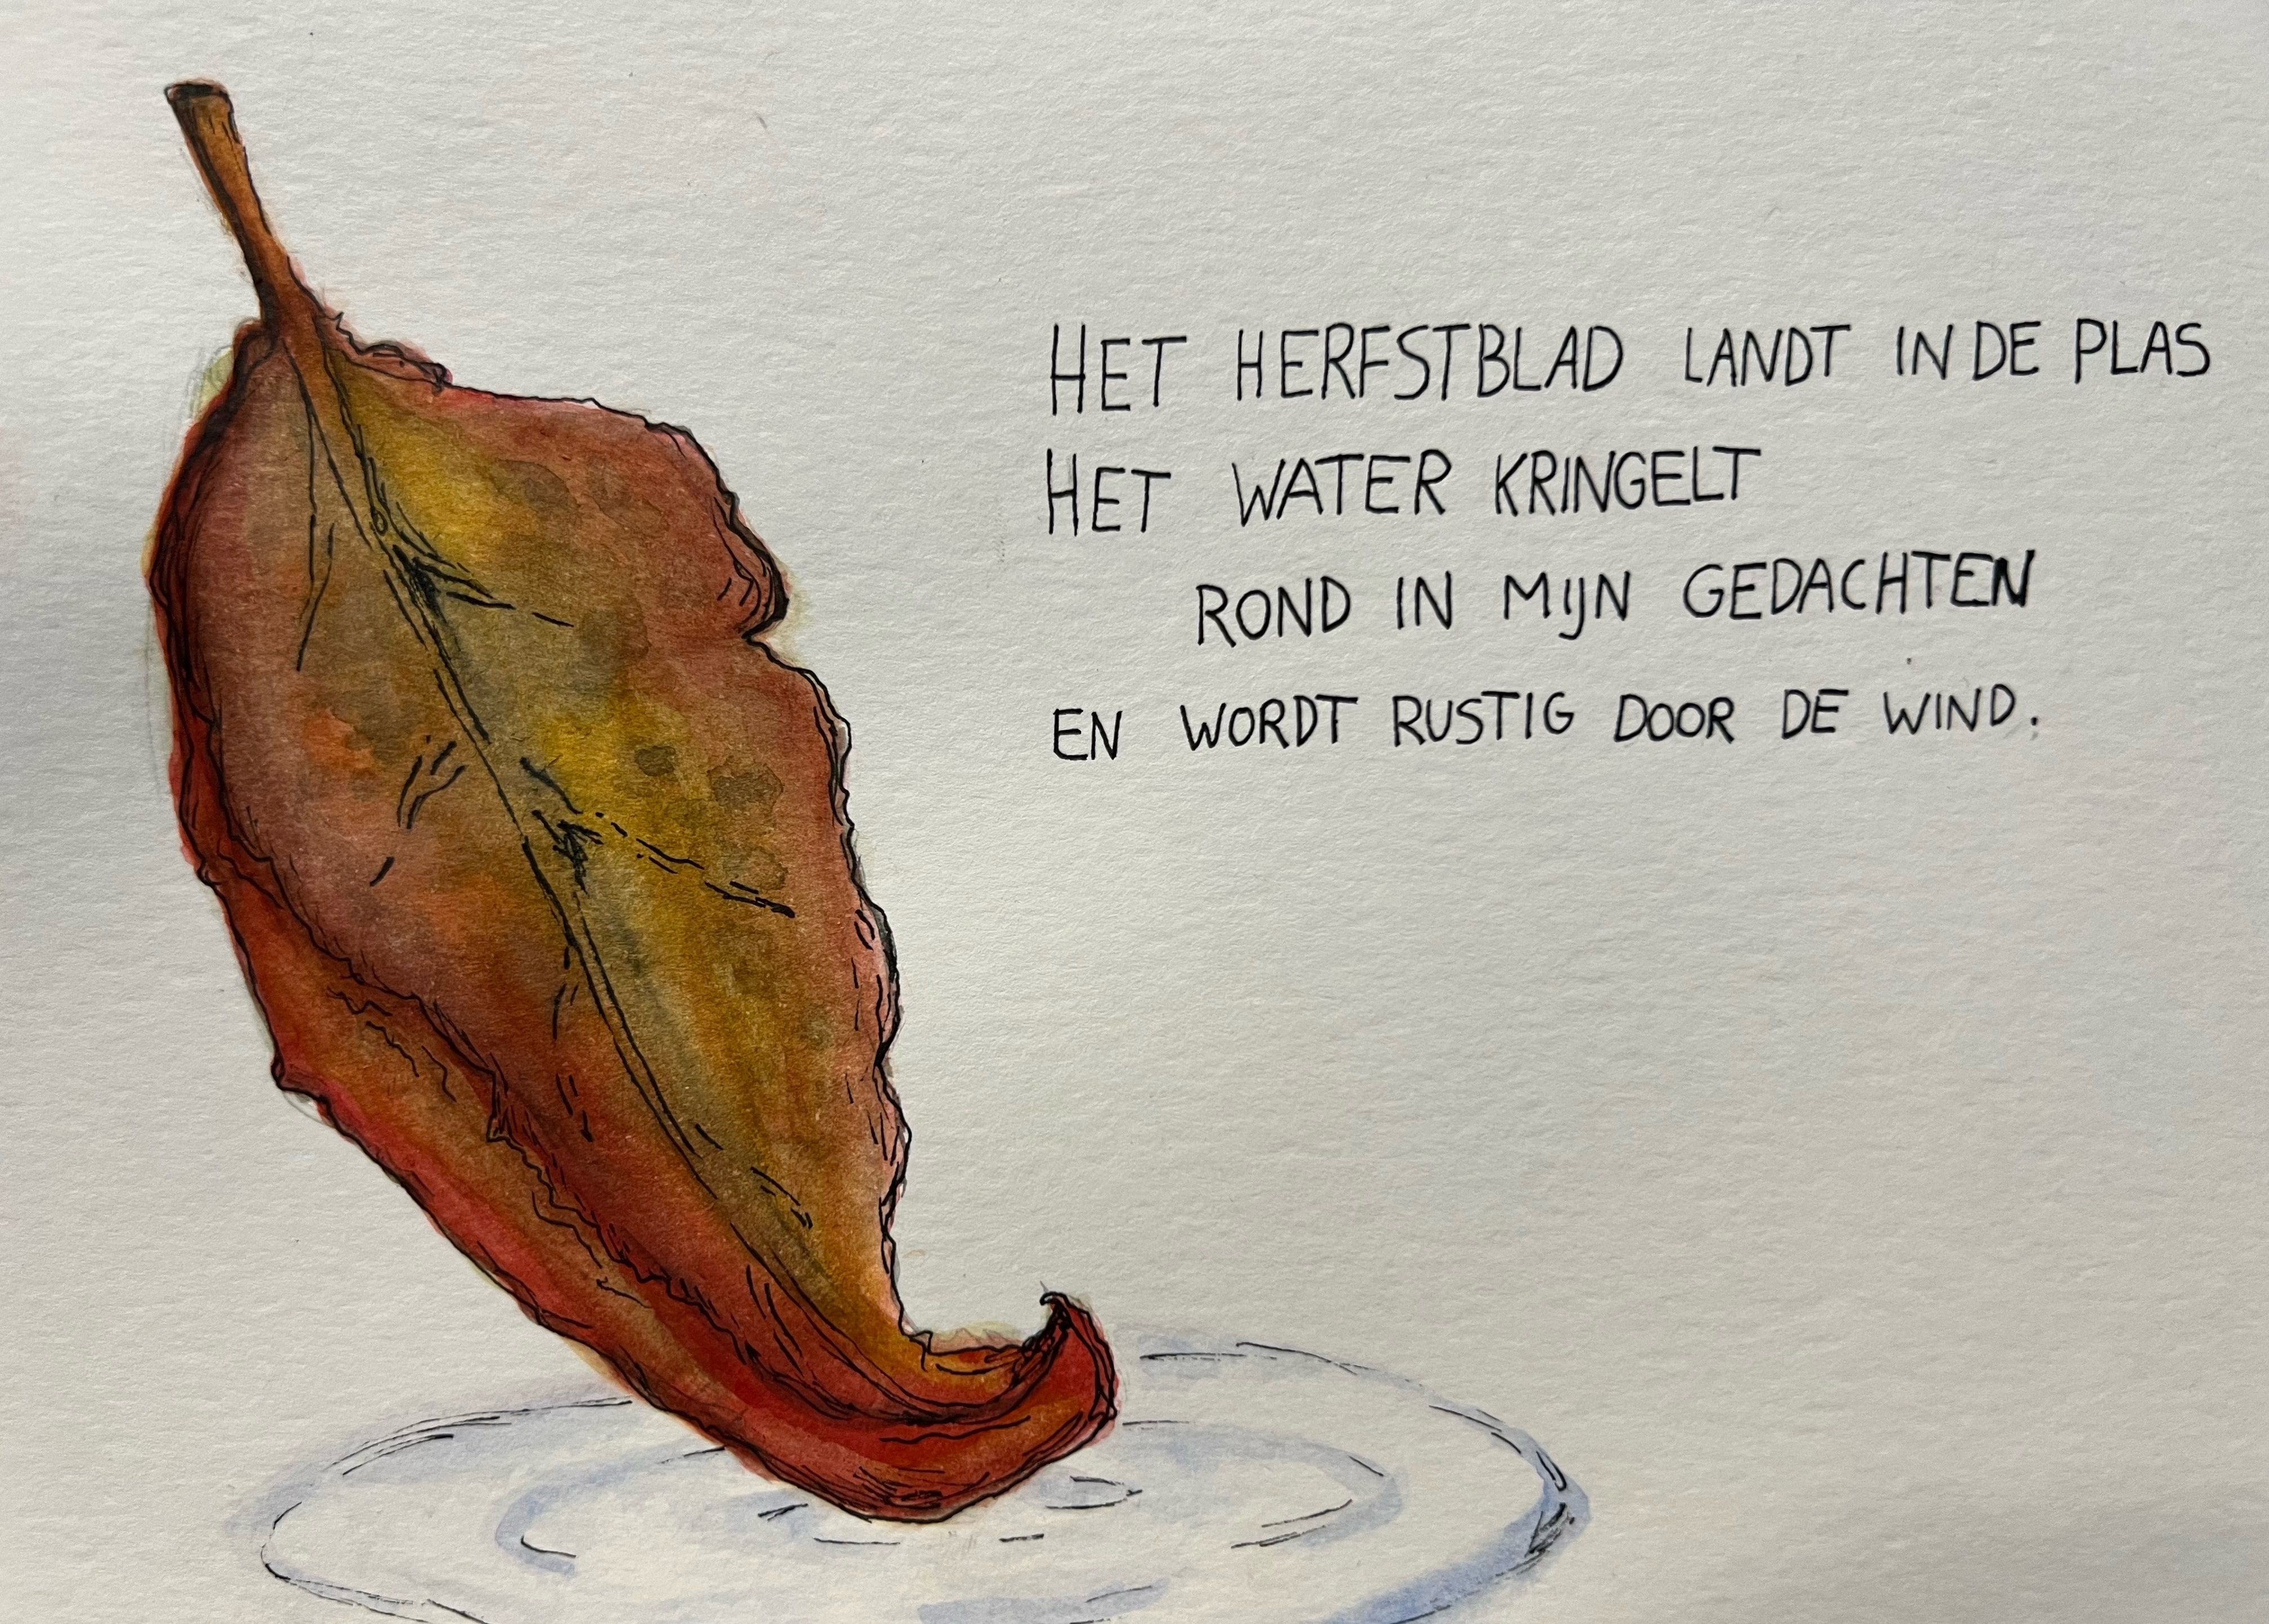 HET HERFSTBLAD LANDT IN DE PLAS
HET WATER KRINGELT
ROND IN MIJN GEDACHTEN
EN WORDT RUSTIG DOOR DE WIND.